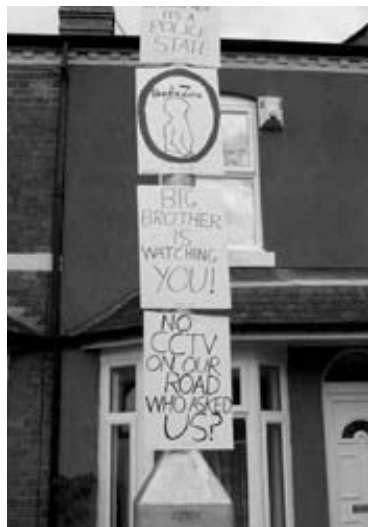 IT'S A
POLICE
STATE
BIG
BROTHER
IS
WATCHING
YOU!
NO
CCTV
ON OUR
ROAD
WHO ASKED
US?